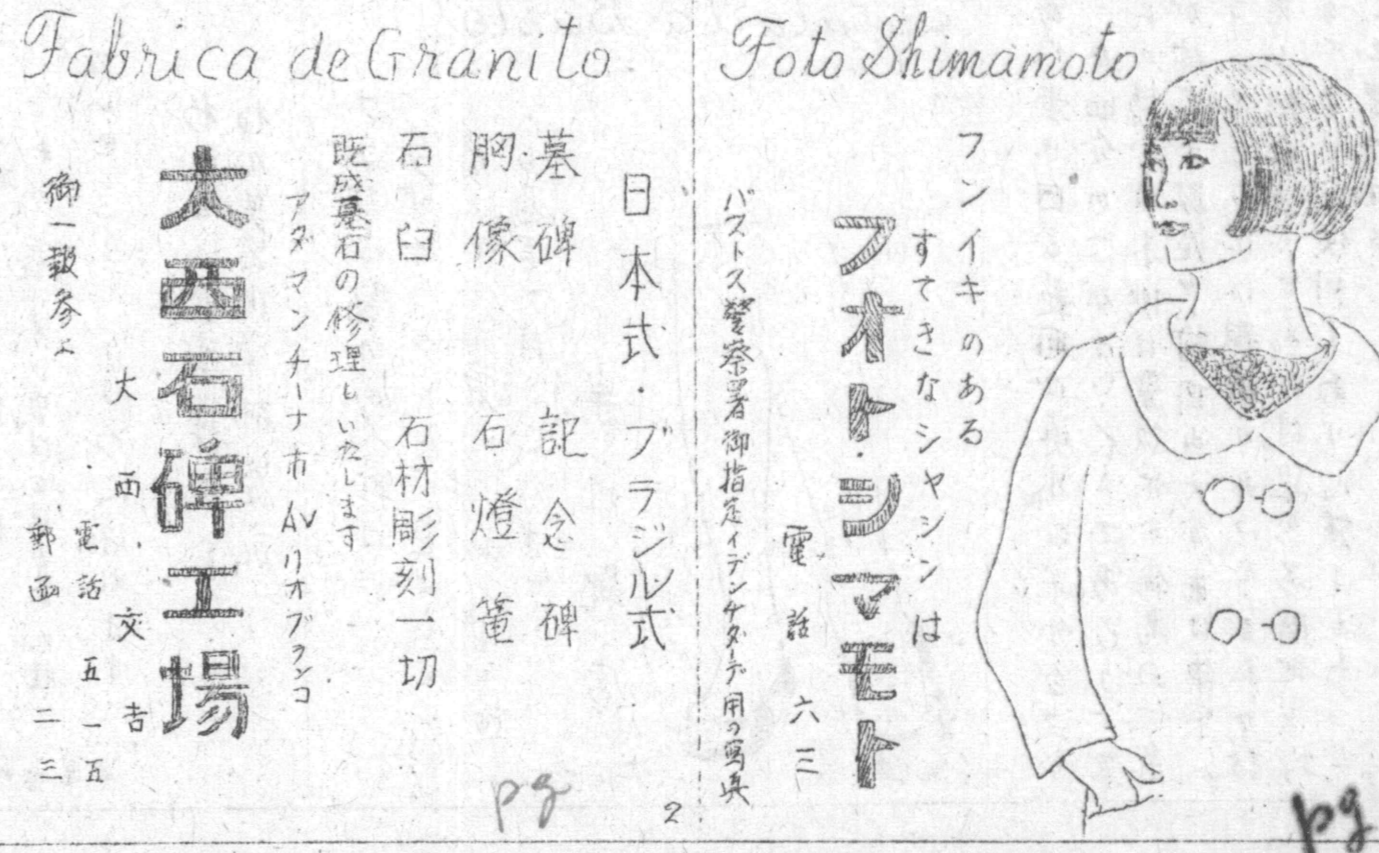 Foto Shimamoto
フンイキのある
すてきなシャシンは
フオト・シマモト
電話 六三
バストス警察署御指定イデンチダーデ用の写真
Fabrica de Granito
日本式・ブラジル式
墓碑 記念碑
胸像 石燈篭
石臼 石材彫刻一切
既成墓石の修理もいたします
アダマンチーナ市 AV リオブランコ
大西石碑工場
大西交吉
電話 五一五
郵函 二三
御一報参上
2
pg
pg